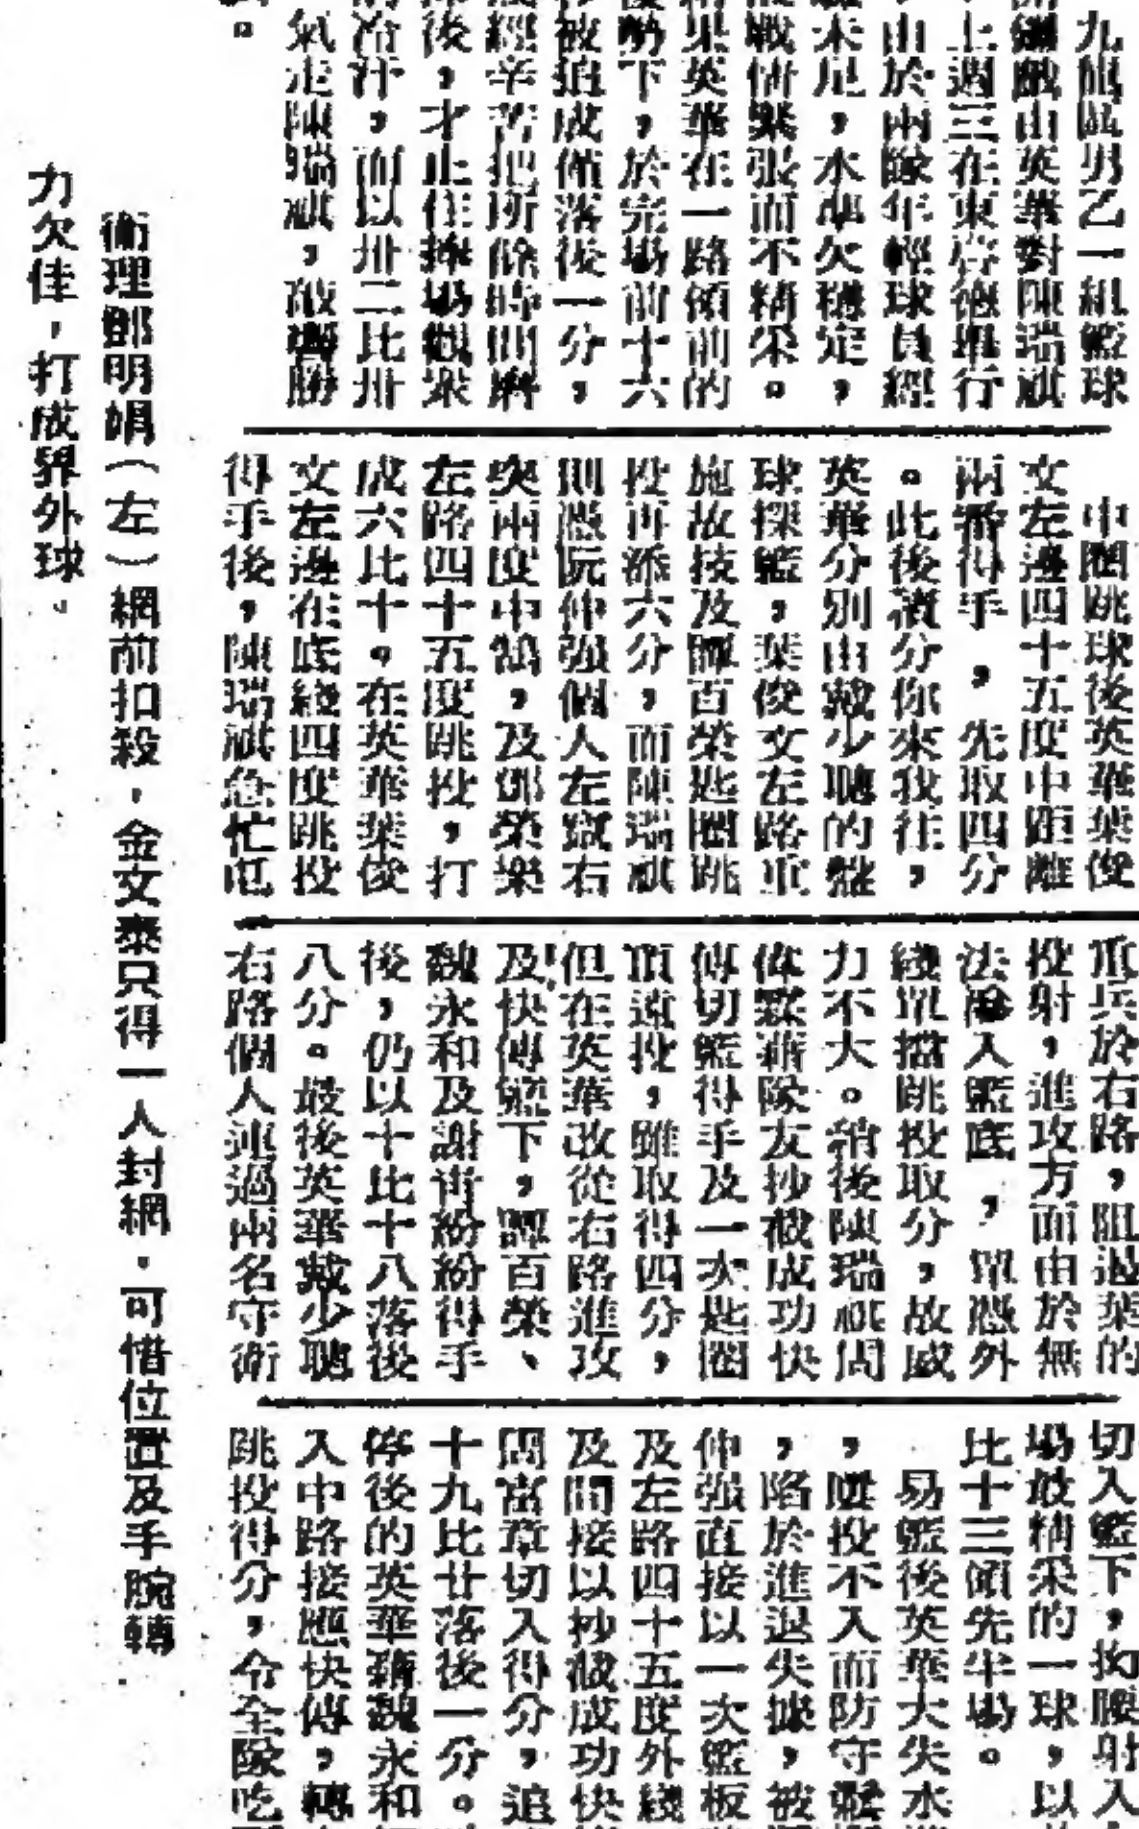 九龍區男乙一組籃球
由英華對陳瑞祺
上週三在東啓德舉行
由於兩隊年輕球員經
未足，水準欠穩定，
戰情緊張而不精采。
果英華在一路領前的
勢下，於完場前十六
被追成僅落後一分，
經辛苦把所餘時間
後，才止住捧場觀眾
冷汗，而以卅二比卅
氣走陳瑞祺，勝
。
中圈跳球後英華葉俊
文左邊四十五度中距離
兩番得手，先取四分
。此後讀分你來我往，
英華分別由戴少聰的
球探籃，葉俊文左路重
施故技及譚百榮匙圈跳
投再添六分，而陳瑞祺
則憑阮仲强個人左竄右
突兩度中鵠，及鄧榮樂
左路四十五度跳投，打
成六比十。在英華葉俊
文左邊在底綫四度跳投
得手後，陳瑞祺急忙屯
重兵於右路，阻遏葉的
投射，進攻方面由於無
法入籃底，單憑外
綫單擋跳投取分，故威
力不大。稍後陳瑞祺周
偉霖藉隊友抄截成功快
傳切籃得手及一次匙圈
頂遠投，雖取得四分，
但在英華改從右路進攻
及快傳籃下，譚百榮、
魏永和及謝紛紛得手
後，仍以十比十八落後
八分。最後英華戴少聰
右路個人連過兩名守衛
切入籃下，拗腰射入
場最精采的一球，以
比十三領先半場。
易籃後英華大失水
，屢投不入而防守
，陷於進退失據，被
仲强直接以一次籃板
及左路四十五度外綫
及間接以抄截成功快
周富章切入得分，追
十九比廿落後一分。
停後的英華藉魏永和
入中路接應快傳，轉
跳投得分，令全隊吃
衛理鄧明娟（左）網前扣殺，金文泰只得一人封網，可惜位置及手腕轉
力欠佳，打成界外球。